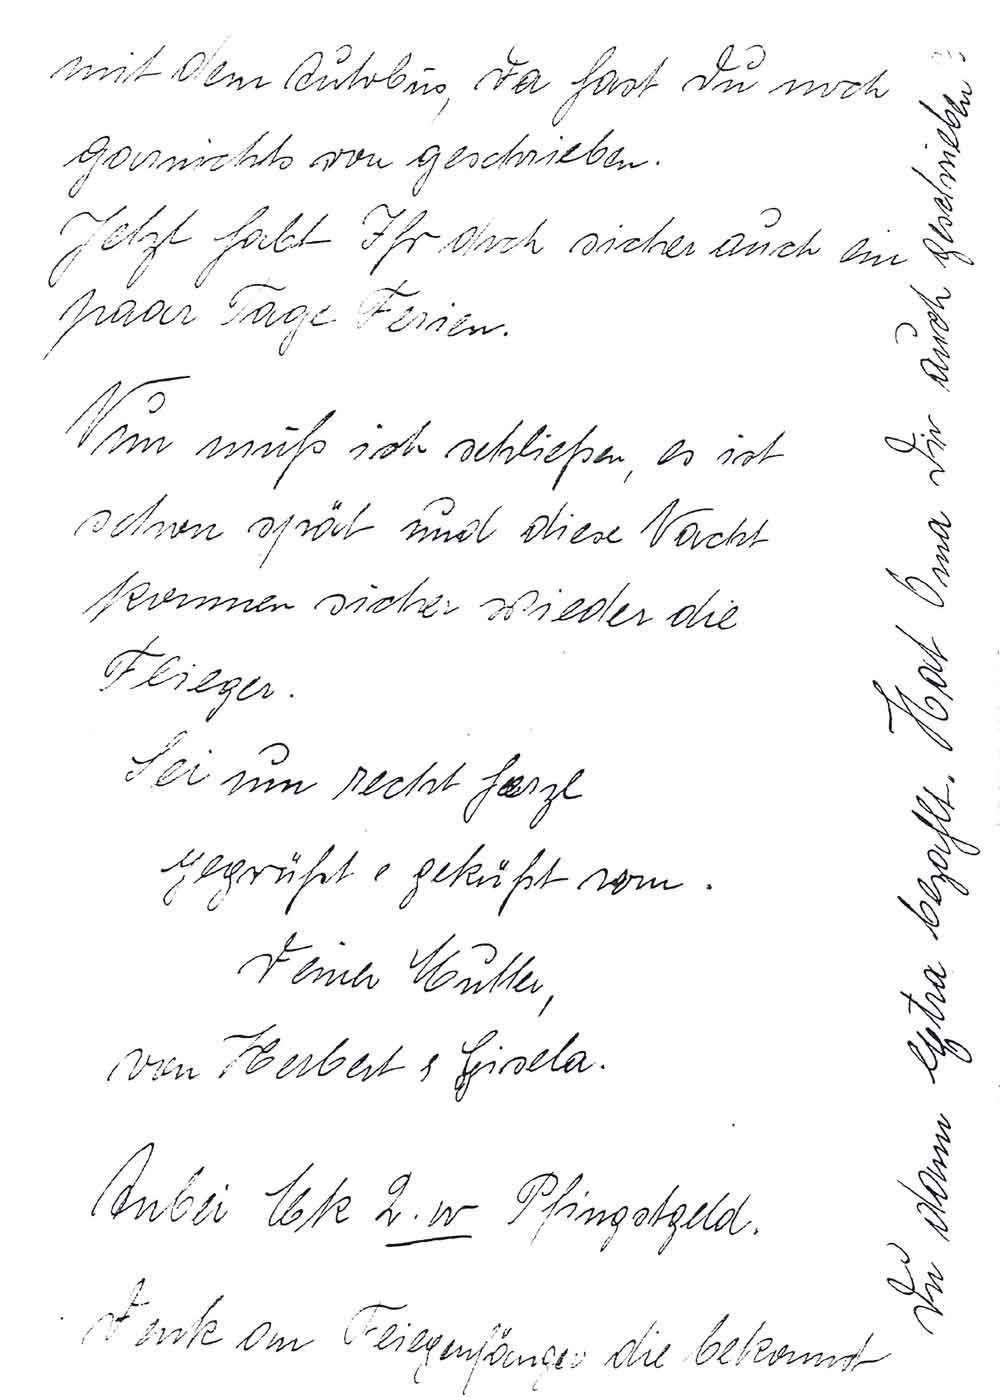 mit dem Autobus, da hast Du noch
garnichts von geschrieben.
Jetzt habt Ihr doch sicher auch ein
paar Tage Ferien.
Nun muß ich schließen, es ist
schon spät und diese Nacht
kommen sicher wieder die
Flieger.
Sei nun recht herzl
gegrüßt & geküßt von.
Deiner Mutter,
von Herbert & Gisela.
Anbei Mk 2.00 Pfingstgeld.
Denk an Fliegenfänger die bekommt
Du dann extra bezahlt. Hat Oma Dir auch geschrieben?